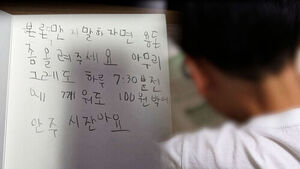 본론만 지말하자면 용돈
좀 올려주세요 아무리
그레도 하루 7:30 분전
에 깨워도 100원 밖에
안주시잔아요